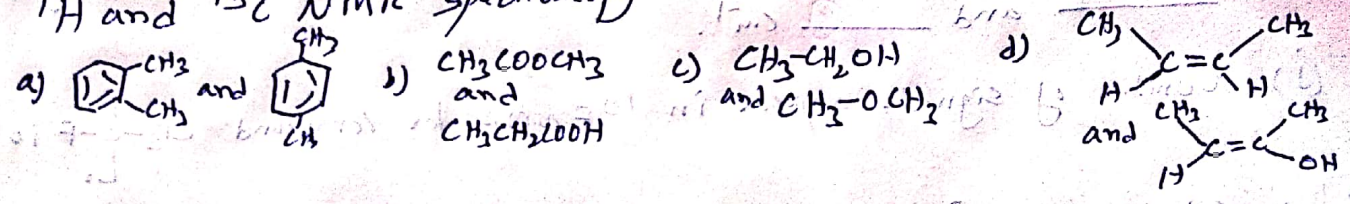 1H and 13C NMR
a) CH3 CH3 and CH3 CH3
b) CH3COOCH3 and CH3CH2COOH
c) CH3-CH2OH and CH3-O.CH3
d) CH3 CH3 C=C H H
and CH3 CH3 C=C H OH